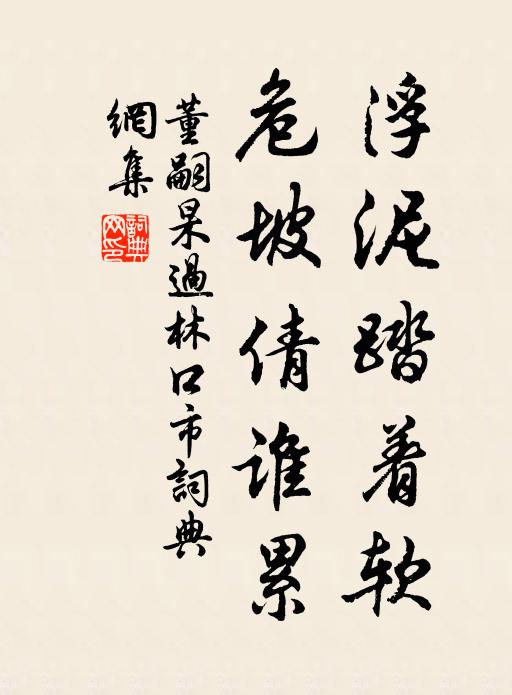 浮泥踏着软
危坡倩谁累
董嗣杲過林口市詞典
網集
詞典
网印